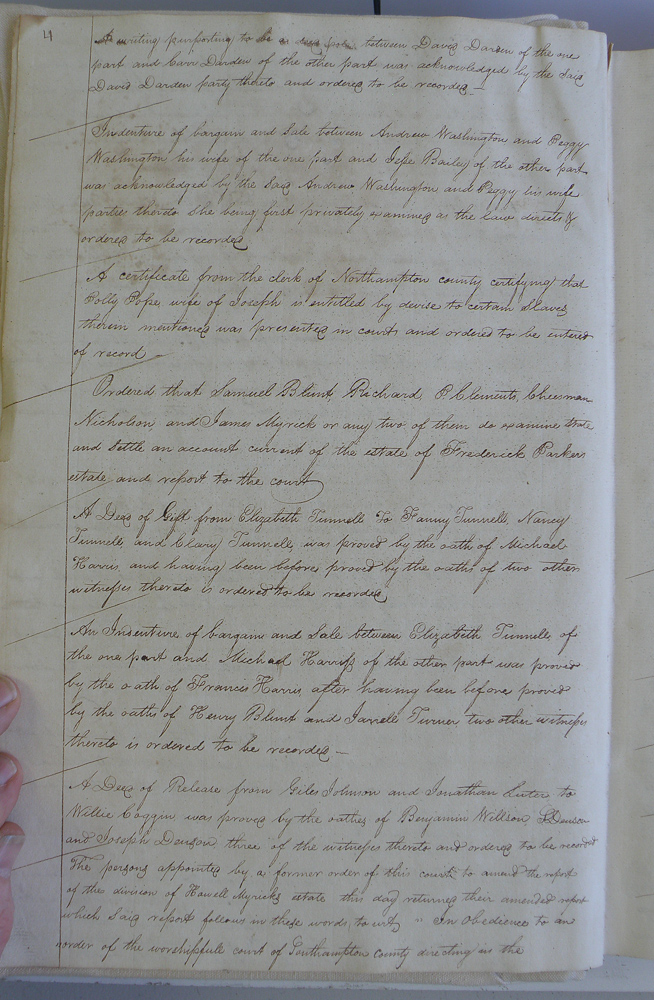 4
A writing purporting to be a deed from between David Darden of the one
part and Carr Darden of the other part was acknowledged by the said
David Darden party thereto and ordered to be recorded —
Indenture of bargain and Sale between Andrew Washington and Peggy
Washington his wife of the one part and Jesse Bailey of the other part
was acknowledged by the said Andrew Washington and Peggy his wife
parties thereto she being first privately examined as the law directs &
ordered to be recorded
A certificate from the clerk of Northampton county certifying that
Polly Pope wife of Joseph is entitled by devise to certain slaves
therein mentioned was presented in court and ordered to be entered
of record
Ordered that Samuel Blunt, Richard P Clements, Cheesman
Nicholson and James Myrick or any two of them do examine state
and settle an account current of the estate of Frederick Parkers
estate and report to the court
A Deed of Gift from Elizabeth Tunnell To Fanny Tunnell, Nancy
Tunnell, and Clary Tunnell, was proved by the oath of Michael
Harris, and having been before proved by the oaths of two other
witnesses thereto is ordered to be recorded
An Indenture of bargain and Sale between Elizabeth Tunnell, of
the one part and Michael Harriss of the other part was proved
by the oath of Francis Harris after having been before proved
by the oaths of Henry Blunt and Jarrell Turner two other witnesses
thereto is ordered to be recorded —
A Deed of Release from Giles Johnson and Jonathan Luter to
Willie Coggin was proved by the oathes of Benjamin Willison, Denson
and Joseph Denson three of the witnesses thereto and ordered to be recorded
The persons appointed by a former order of this court to amend the report
of the division of Howell Myricks estate this day returned their amended report
which said report follows in these words to wit, " In Obedience to an
order of the worshipfull court of Southampton county directing us the